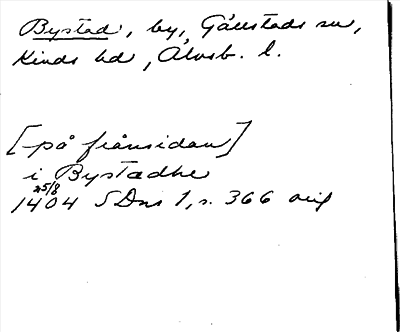 Bystad, by, Gällstads sn,
Kinds hd, Älvsb. l.
[på frånsidan]
i Bystadhe
25/8
1404 SDns 1, s. 366 orig